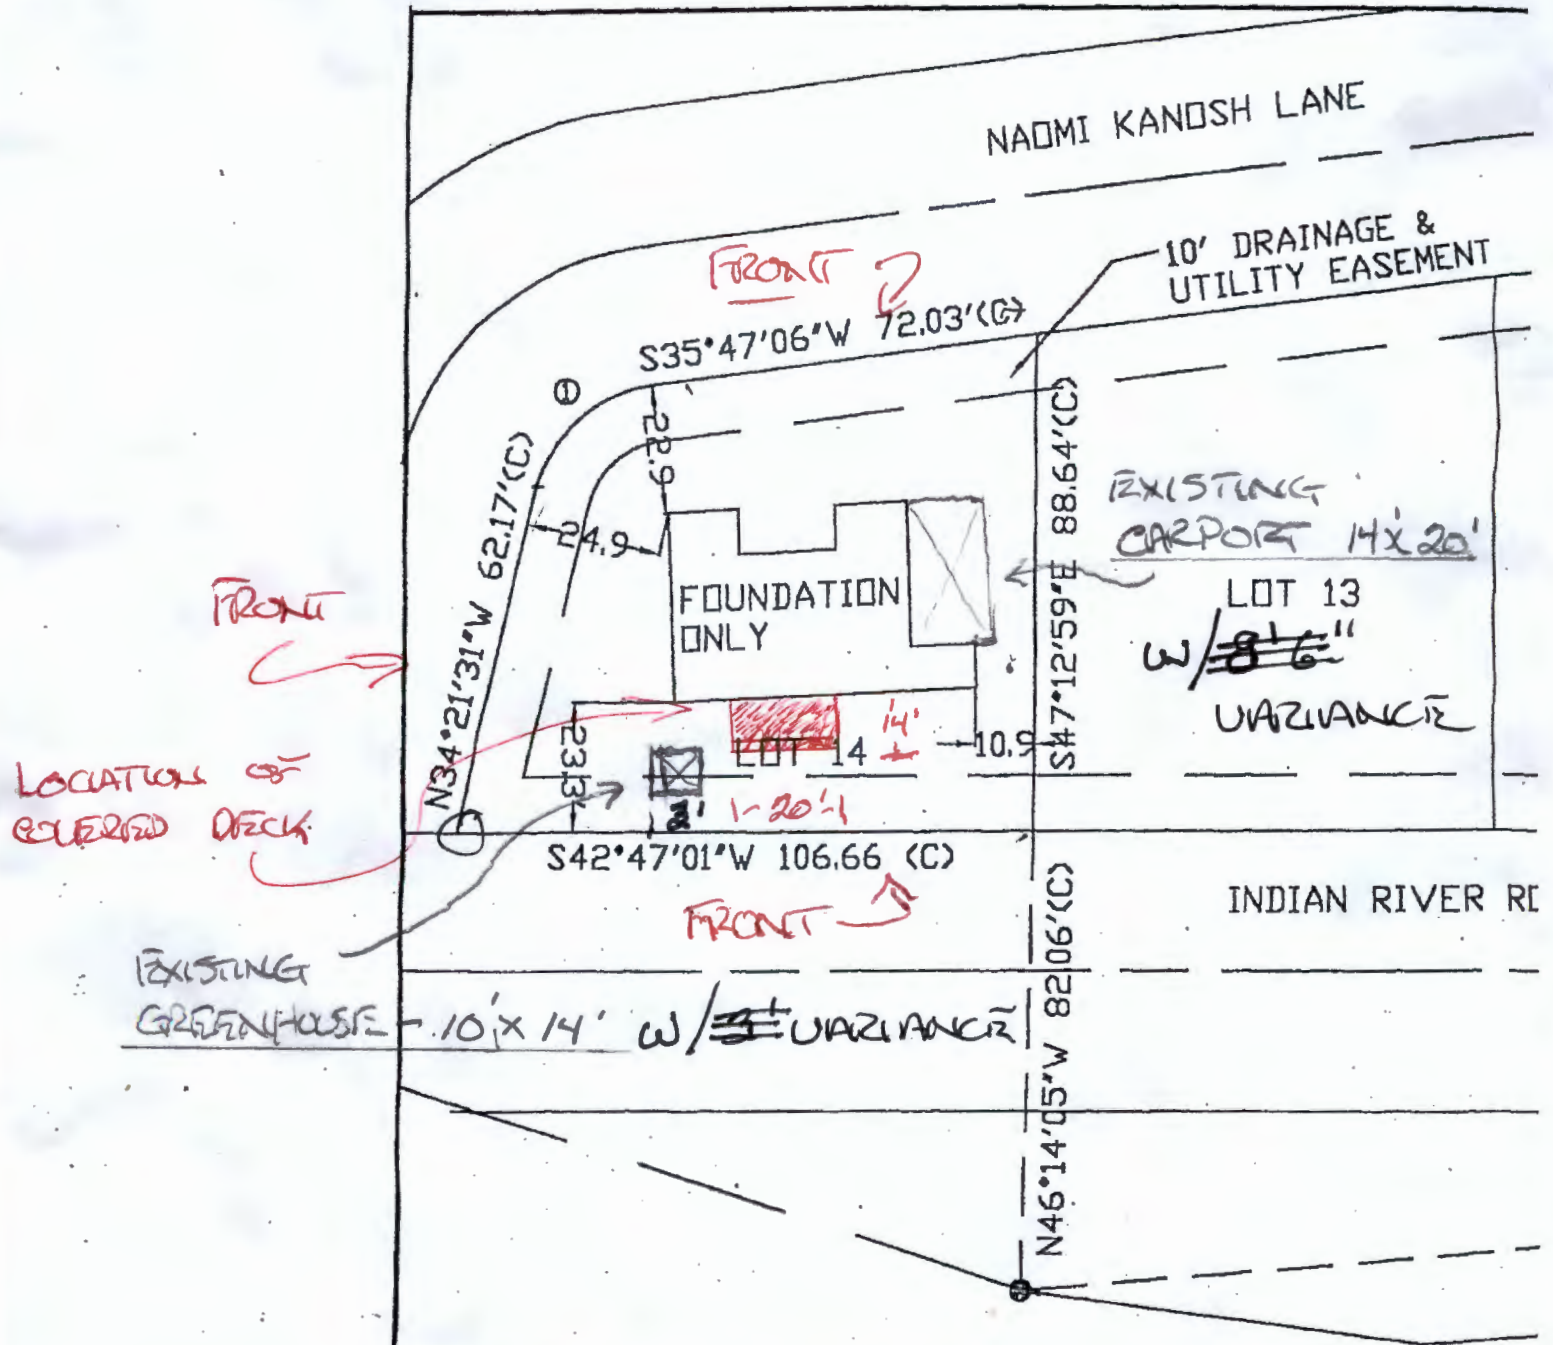 NAOMI KANOSH LANE
10' DRAINAGE &
UTILITY EASEMENT
FRONT
S35°47'06"W 72.03'(C)
1
22.9
24.9
N34°21'31"W 62.17'(C)
S47°12'59"E 88.64'(C)
EXISTING
CARPORT 14'x20'
LOT 13
w/8'6"
VARIANCE
FOUNDATION
ONLY
FRONT
LOCATION OF
COVERED DECK
23.3'
LOT 14
14'
10.9
1-20'-1
S42°47'01"W 106.66 (C)
FRONT
INDIAN RIVER RD
EXISTING
GREENHOUSE - 10'x14' w/3' VARIANCE
N46°14'05"W 82.06'(C)